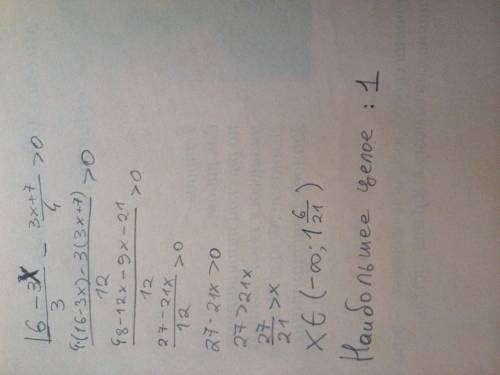 (16 - 3x)/3 - (3x+7)/4 > 0
(4(16-3x) - 3(3x+7))/12 > 0
(48-12x-9x-21)/12 > 0
(27-21x)/12 > 0
27-21x>0
27>21x
27/21 > x
x ∈ (-∞; 1 6/21)
Наибольшее целое : 1